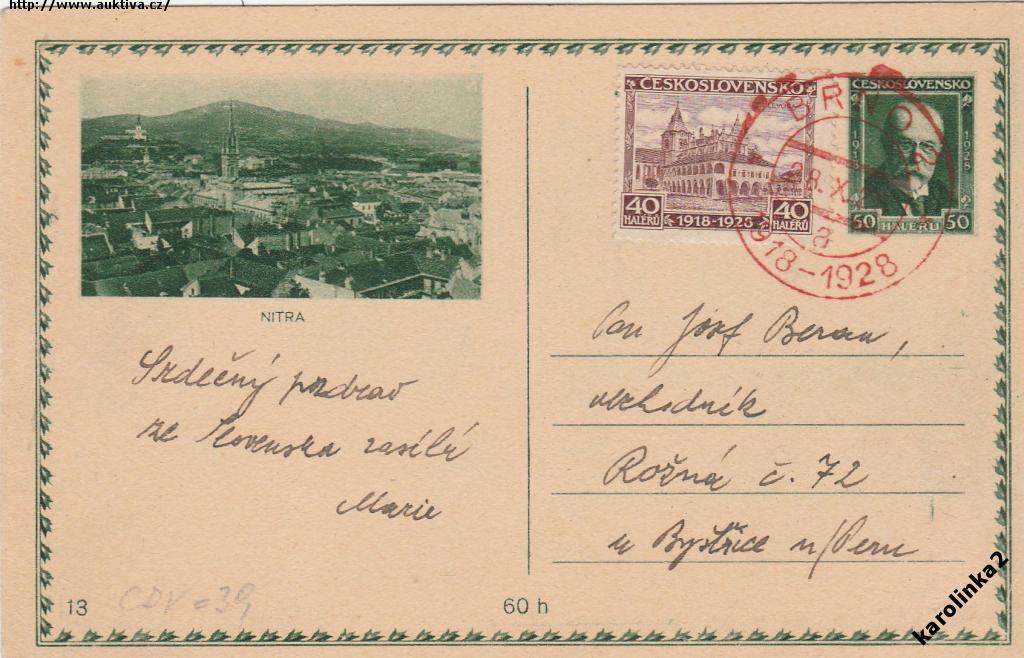 http://www.auktiva.cz/
ČESKOSLOVENSKO
LEVOČA
40 HALÉŘŮ 1918-1928 40 HALÉŘŮ
ČESKOSLOVENSKO
1918 1928
50 HALÉŘŮ 50
BRNO 2
28.X.
a
1918-1928
NITRA
Srdečný pozdrav
ze Slovenska zasílá
Marie
Pan Josef Beran,
obchodník
Rožná č. 72
u Bystřice n/Pern
13
CDV = 39,
60 h
karolinka2